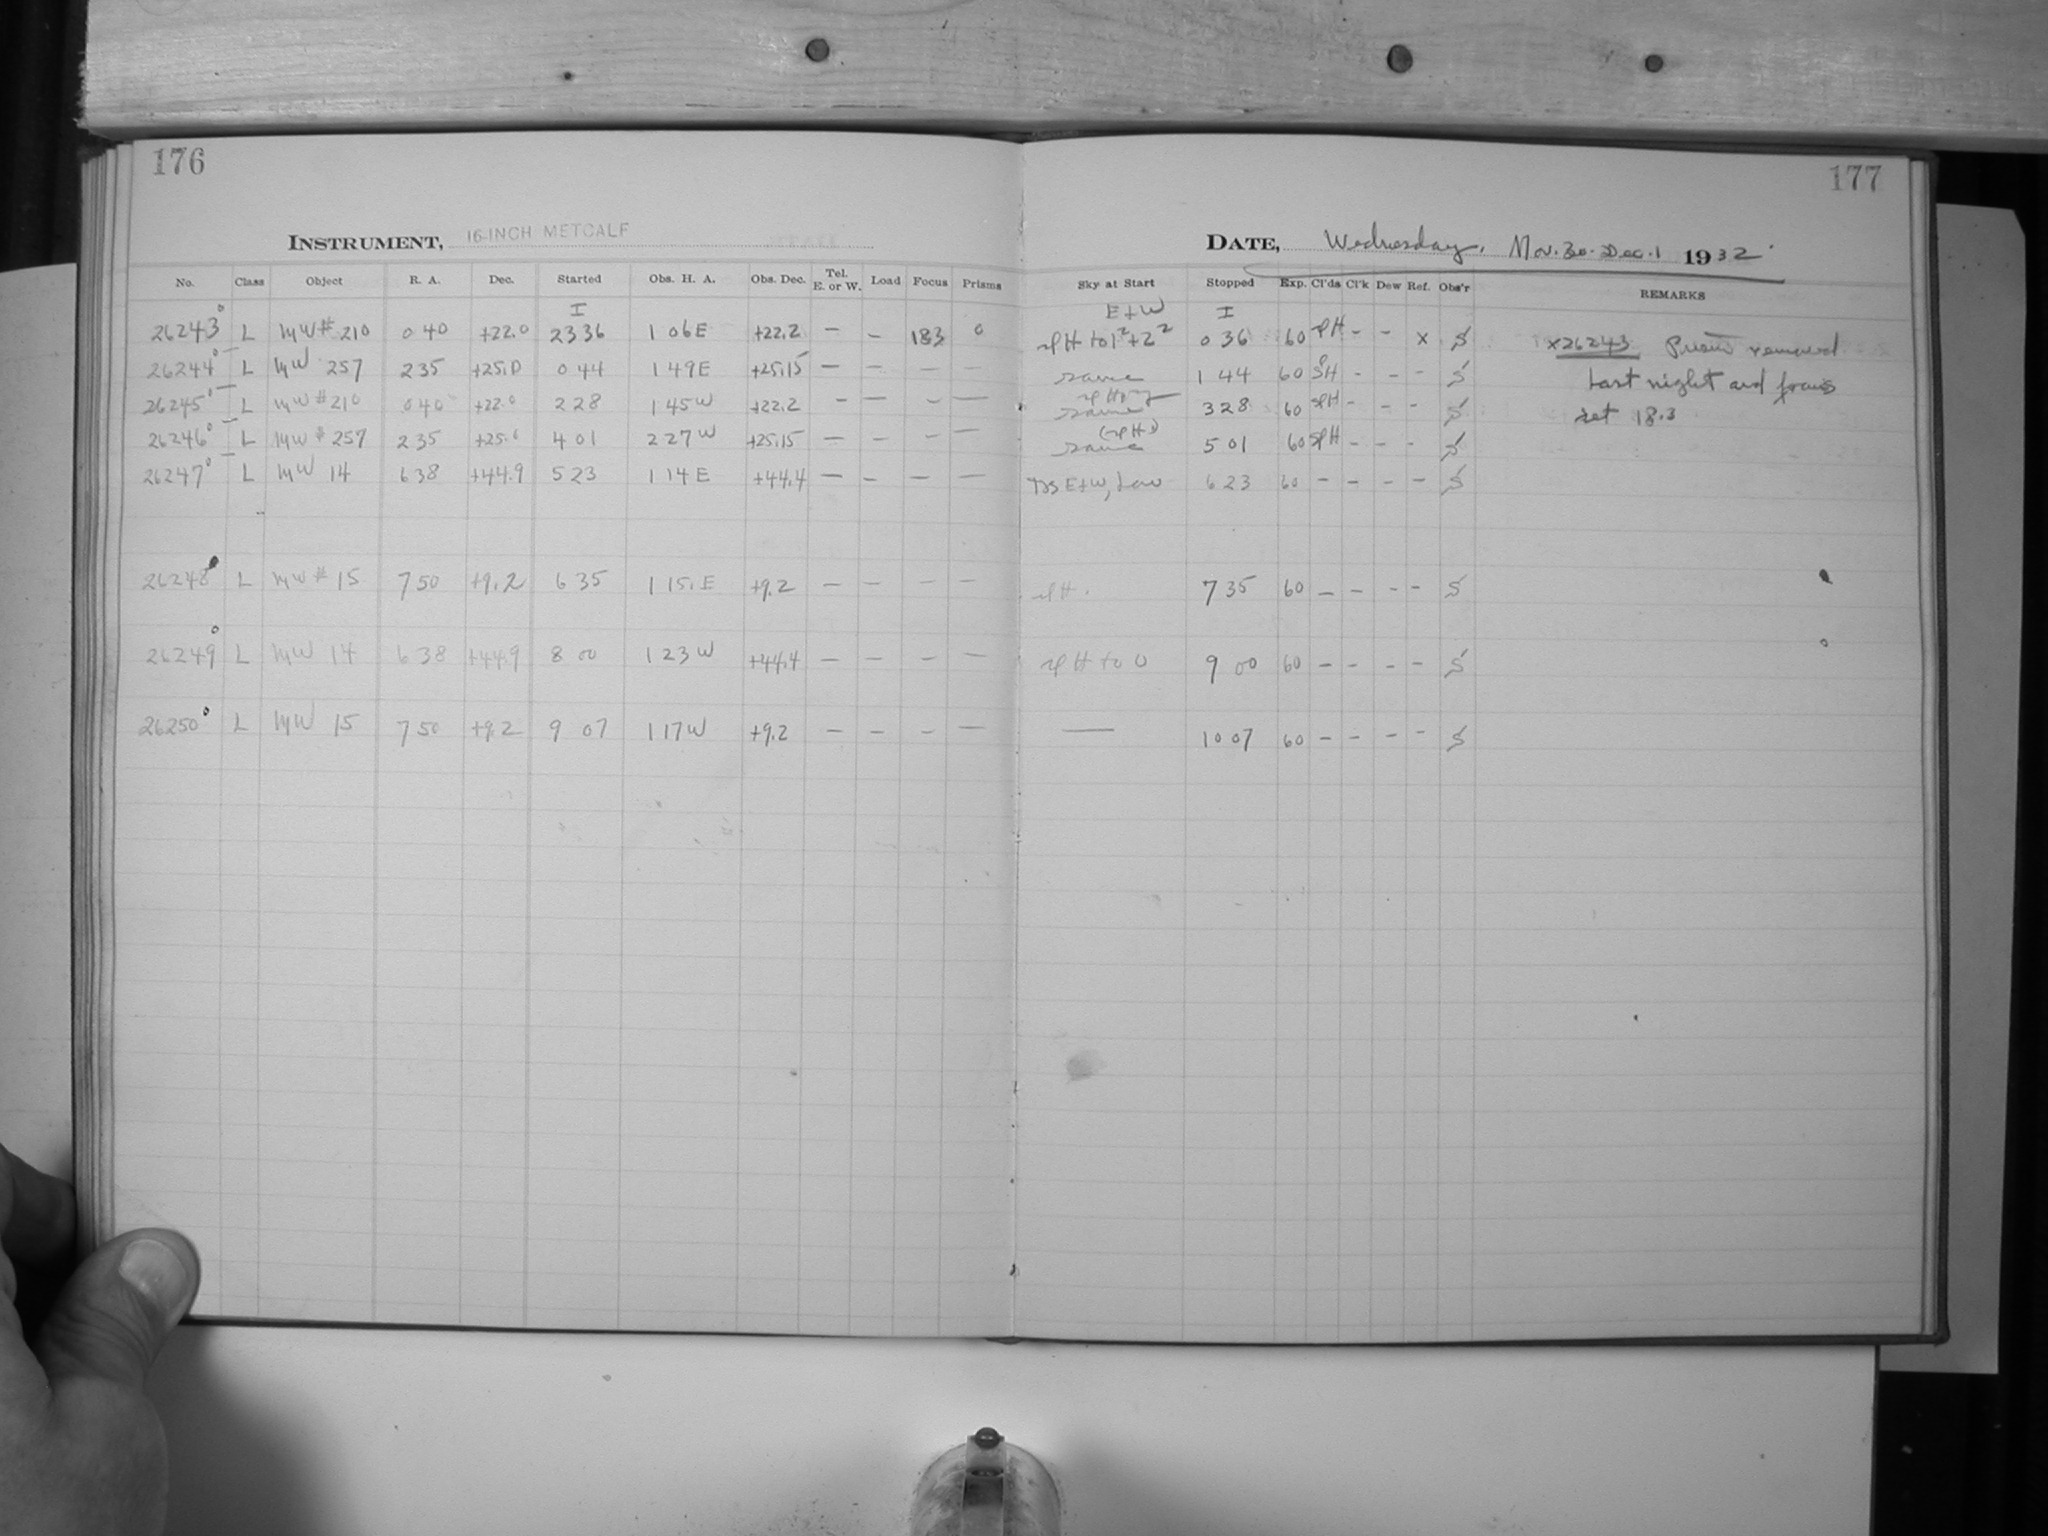 176
177
INSTRUMENT, 16-INCH METCALF
DATE, Wednesday, Nov. 30 - Dec. 1 1932
No. Class Object R. A. Dec. Started Obs. H. A. Obs. Dec. Tel. E. or W. Load Focus Prisms Sky at Start Stopped Exp. Cl'ds Cl'k Dew Ref. Obs'r REMARKS
I E+W I
26243 L MW# 210 0 40 +22.0 23 36 1 06E +22.2 — — 183 0 spH to 1² + 2² 0 36 60 spH - - x S x26243 Prism removed
26244 L MW 257 2 35 +25.0 0 44 1 49E +25.15 — — — — same 1 44 60 SH - - - S last night and focus
26245 L MW#210 0 40 +22.0 2 28 1 45W +22.2 — — — — same 3 28 60 spH - - - S set 18.3
26246 L MW# 257 2 35 +25.0 4 01 2 27W +25.15 — — — — same (spH) 5 01 60 spH - - - S
26247 L MW 14 6 38 +44.9 5 23 1 14E +44.4 — — — — E+W, Low 6 23 60 - - - - S
26248 L MW# 15 7 50 +9.2 6 35 1 15.E +9.2 — — — — spH. 7 35 60 - - - - S
26249 L MW 14 6 38 +44.9 8 00 1 23W +44.4 — — — — spH to 0 9 00 60 - - - - S
26250 L MW 15 7 50 +9.2 9 07 1 17W +9.2 — — — — — 10 07 60 - - - - S